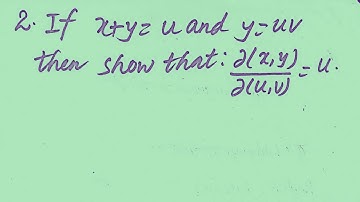 2. If x+y = u and y = uv
then show that: ∂(x,y)/∂(u,v) = u.